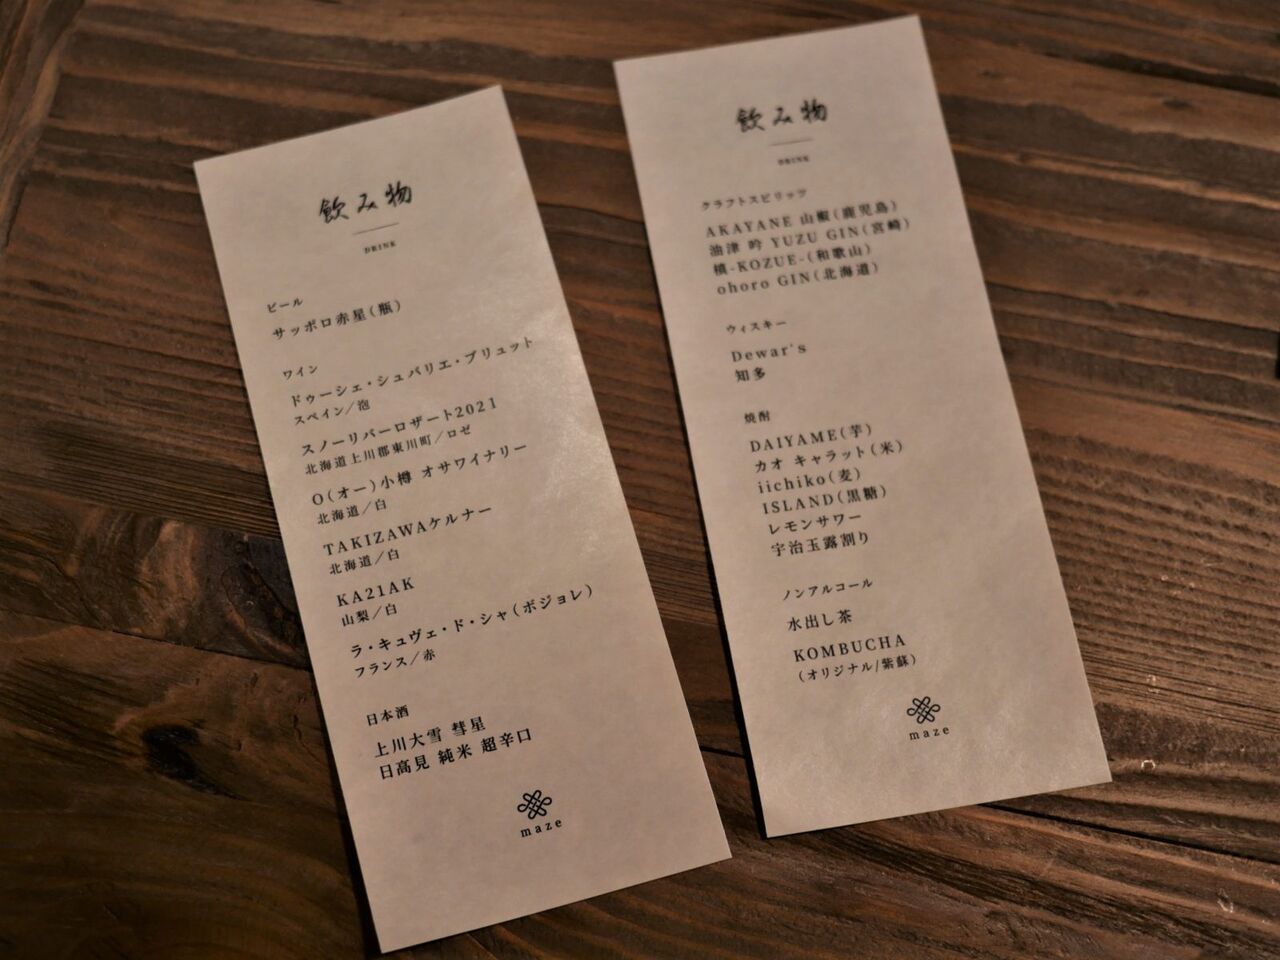 飲み物
DRINK
ビール
サッポロ赤星(瓶)
ワイン
ドゥーシェ・シュバリエ・ブリュット
スペイン/泡
スノーリバーロザート2021
北海道上川郡東川町/ロゼ
O(オー)小樽 オサワイナリー
北海道/白
TAKIZAWAケルナー
北海道/白
KA21AK
山梨/白
ラ・キュヴェ・ド・シャ(ボジョレ)
フランス/赤
日本酒
上川大雪 彗星
日高見 純米 超辛口
maze
飲み物
DRINK
クラフトスピリッツ
AKAYANE 山椒(鹿児島)
油津 吟 YUZU GIN(宮崎)
槙-KOZUE-(和歌山)
ohoro GIN(北海道)
ウィスキー
Dewar's
知多
焼酎
DAIYAME(芋)
カオ キャラット(米)
iichiko(麦)
ISLAND(黒糖)
レモンサワー
宇治玉露割り
ノンアルコール
水出し茶
KOMBUCHA
(オリジナル/紫蘇)
maze